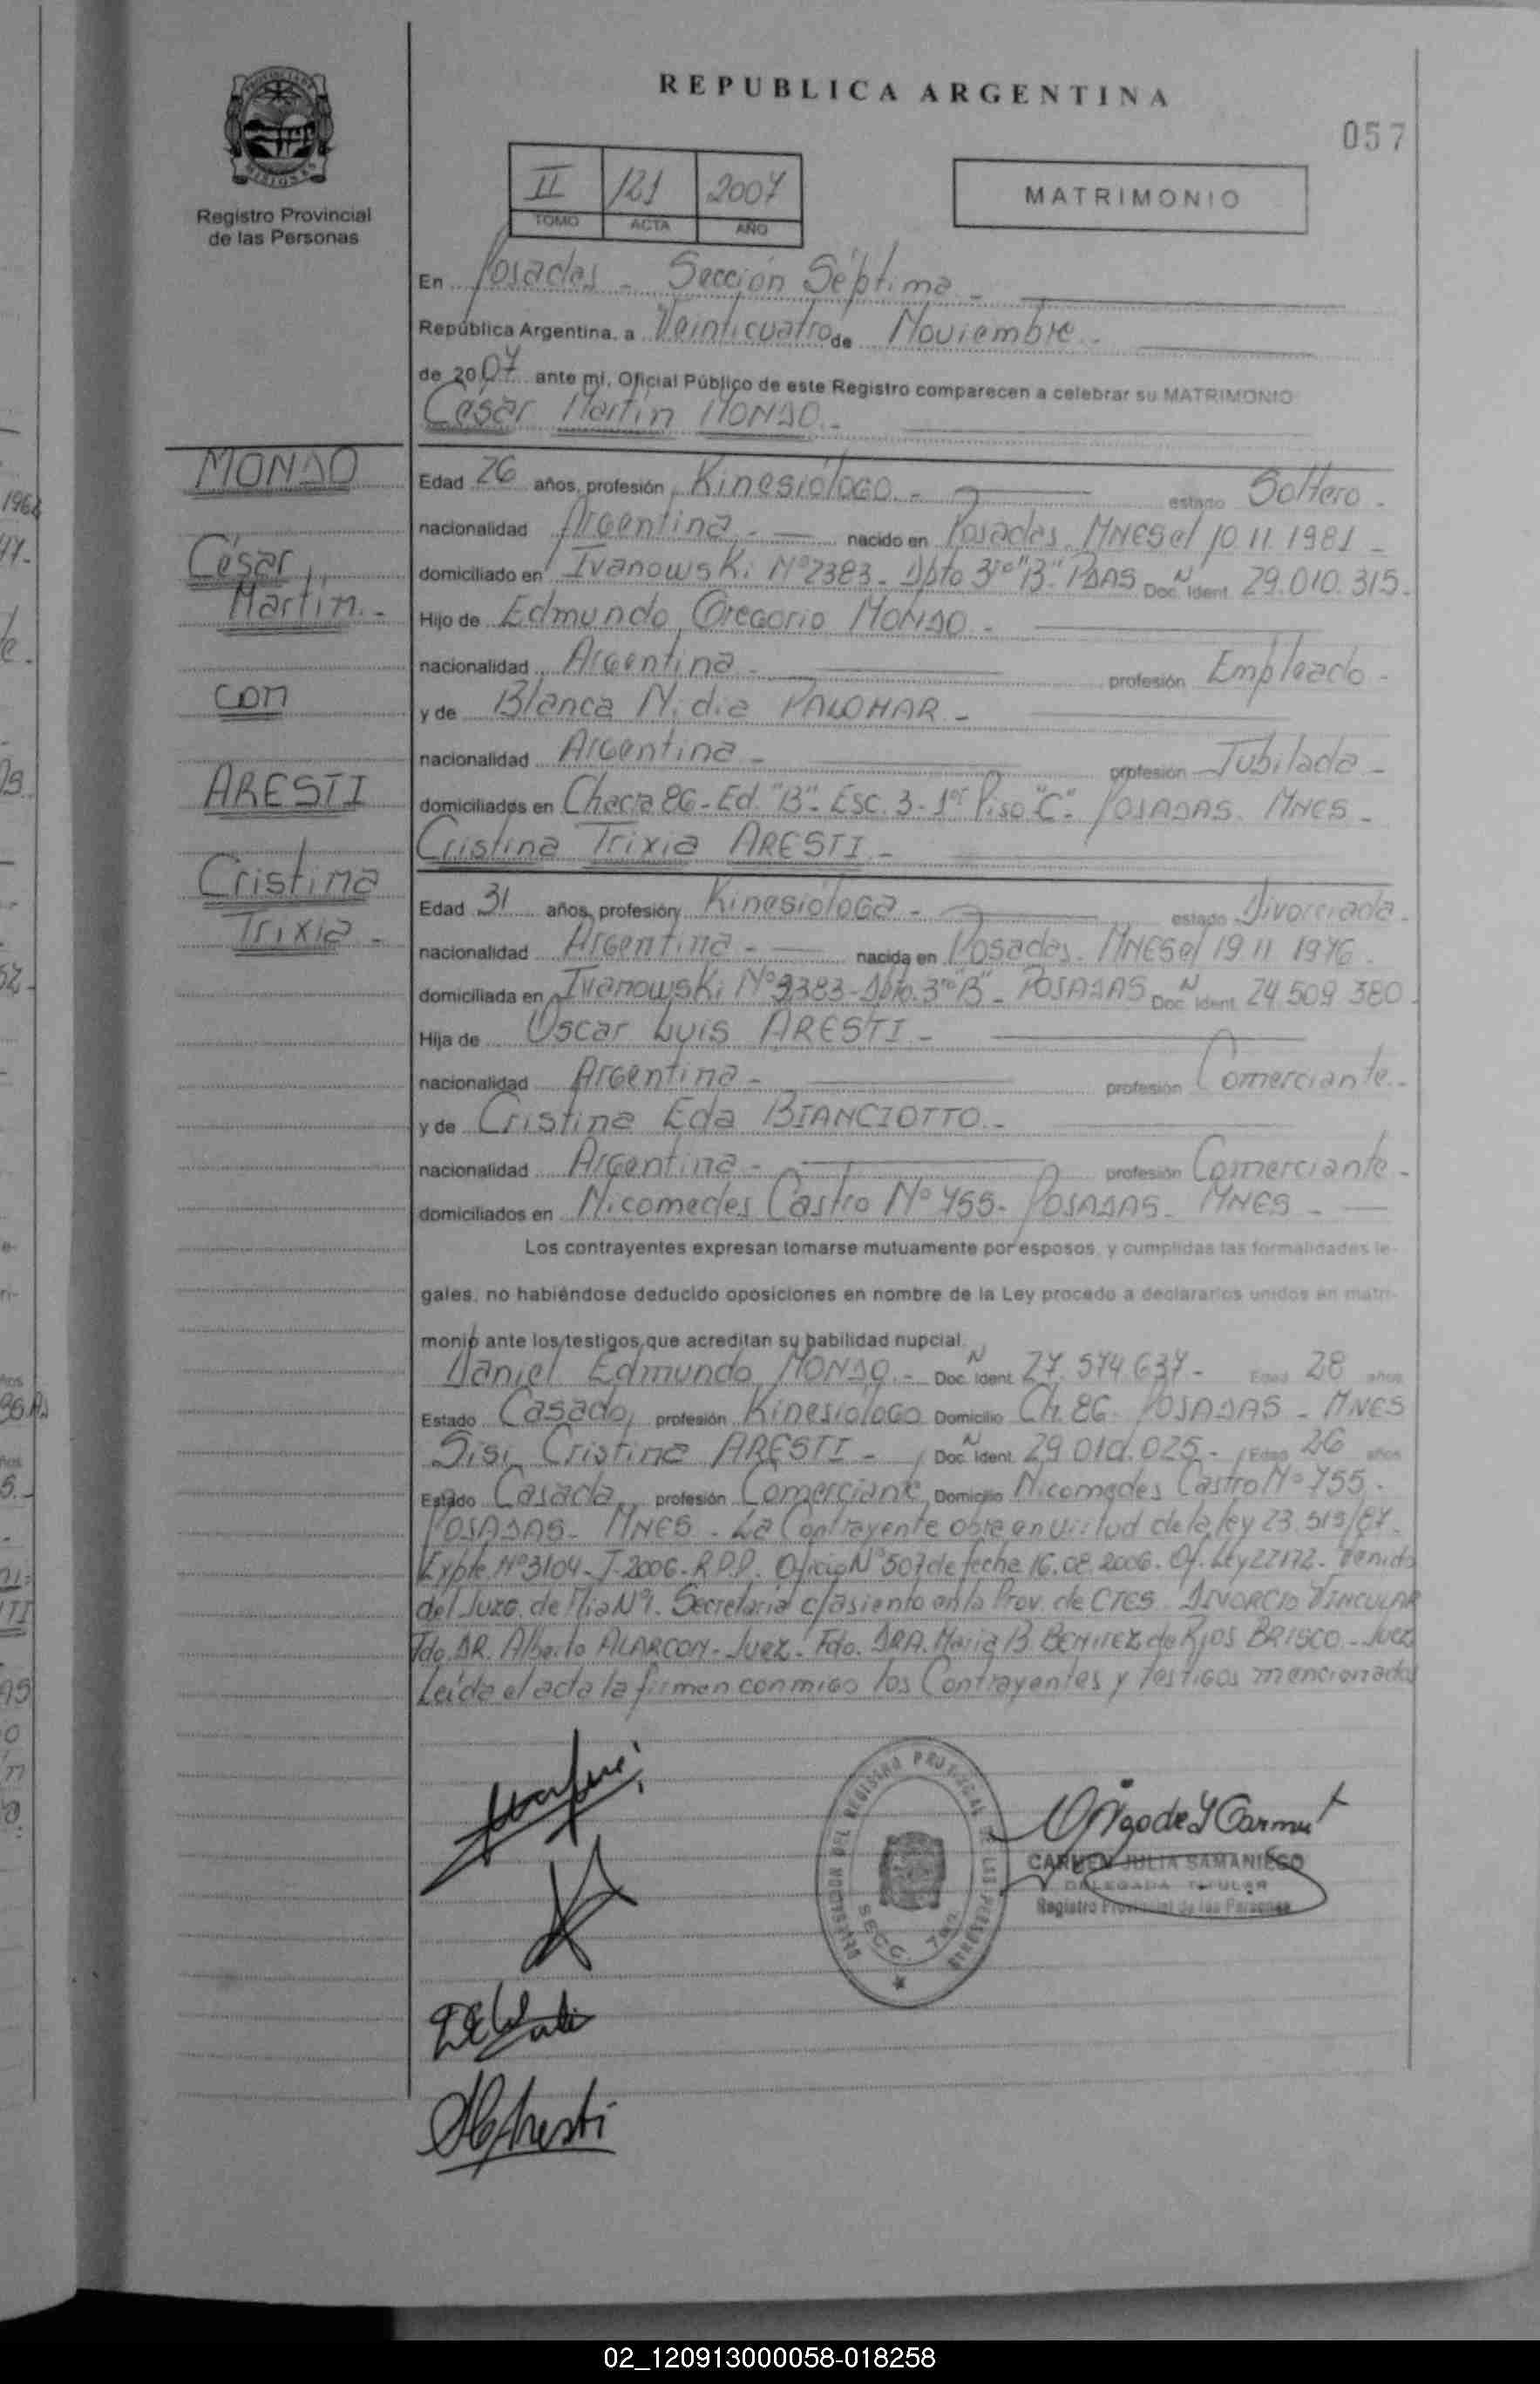 REPUBLICA ARGENTINA
057
Registro Provincial
de las Personas
II 121 2007
TOMO ACTA AÑO
MATRIMONIO
En Posadas - Sección Séptima -
República Argentina, a Veinticuatro de Noviembre -
de 2007 ante mi, Oficial Público de este Registro comparecen a celebrar su MATRIMONIO
César Martín MONDO.-
MONDO
César
Martín.-
con
ARESTI
Cristina
Trixia -
Edad 26 años, profesión Kinesiólogo.- estado Soltero -
nacionalidad Argentina.- nacido en Posadas. MNES el 10 11 1981 -
domiciliado en Ivanowski Nº 2383 - Dpto 3ro "B". PDAS Doc. N Ident. 29.010.315.
Hijo de Edmundo Gregorio MONDO -
nacionalidad Argentina - profesión Empleado -
y de Blanca Nidia PALOMAR -
nacionalidad Argentina - profesión Jubilada -
domiciliados en Chacra 86 - Ed. "B" - Esc. 3 - 1er Piso "C" - POSADAS. MNES -
Cristina Trixia ARESTI -
Edad 31 años, profesión Kinesióloga - estado Divorciada -
nacionalidad Argentina - nacida en Posadas. MNES el 19 11 1976.
domiciliada en Ivanowski Nº 2383 - Dpto. 3ro "B" - POSADAS Doc. N Ident. 24.509.380.
Hija de Oscar Luis ARESTI -
nacionalidad Argentina - profesión Comerciante -
y de Cristina Eda BIANCIOTTO.-
nacionalidad Argentina - profesión Comerciante -
domiciliados en Nicomedes Castro Nº 755 - POSADAS - MNES -
Los contrayentes expresan tomarse mutuamente por esposos, y cumplidas las formalidades le-
gales, no habiéndose deducido oposiciones en nombre de la Ley procedo a declararlos unidos en matri-
monio ante los testigos que acreditan su habilidad nupcial.
Daniel Edmundo MONDO.- Doc. N Ident. 27.574.637 - Edad 28 años
Estado Casado, profesión Kinesiólogo Domicilio Ch. 86 POSADAS - MNES
Sisi Cristina ARESTI - Doc. N Ident. 29.010.025 - Edad 26 años
Estado Casada, profesión Comerciante Domicilio Nicomedes Castro Nº 755 -
POSADAS - MNES. La Contrayente obra en virtud de la ley 23.515/87.
Expte. Nº 3104 - J - 2006 - R.P.P. Oficio Nº 507 de fecha 16.08.2006. Of. Ley 22172. Venido
del Juzg. de Flia Nº 1. Secretaria c/asiento en la Prov. de CTES. DIVORCIO VINCULAR
Fdo. DR. Alberto ALARCON - Juez. Fdo. DRA. Maria B. BENITEZ de RIOS BRISCO - Juez
Leída el acta la firman conmigo los Contrayentes y Testigos mencionados
DELEGACION DEL REGISTRO PROVINCIAL DE LAS PERSONAS
SECC. 7ma.
CARMEN JULIA SAMANIEGO
DELEGADA TITULAR
Registro Provincial de las Personas
02_120913000058-018258